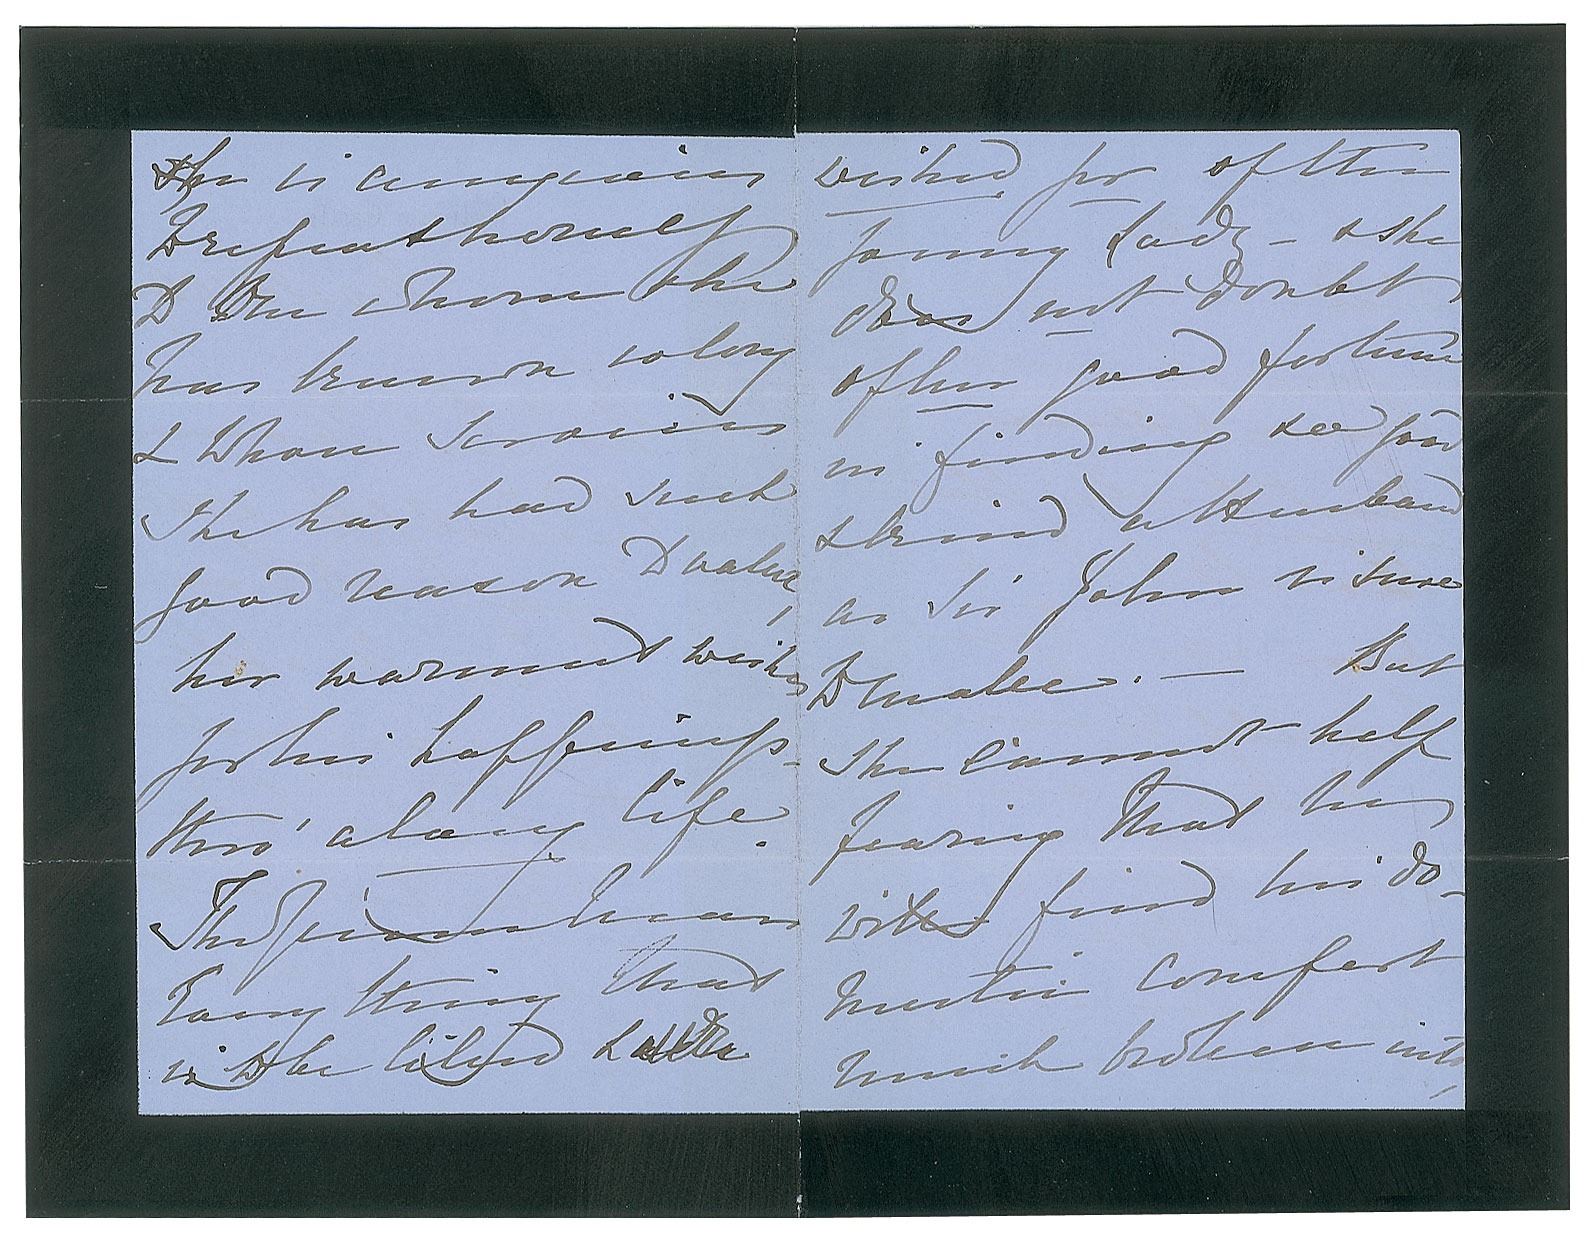 She is anxious
to repeat herself
to one whom she
has known so long
& whose services
she has had such
good reason to value,
her warmest wishes
for his happiness
thro' a long life.
The Queen hears
everything that
is to be liked &
wished for of the
young Lady – & she
does not doubt
of her good fortune
in finding so good
& kind a Husband
as Sir John is sure
to make. — But
she cannot help
fearing that his
wife find his do-
mestic comfort
much broken into,